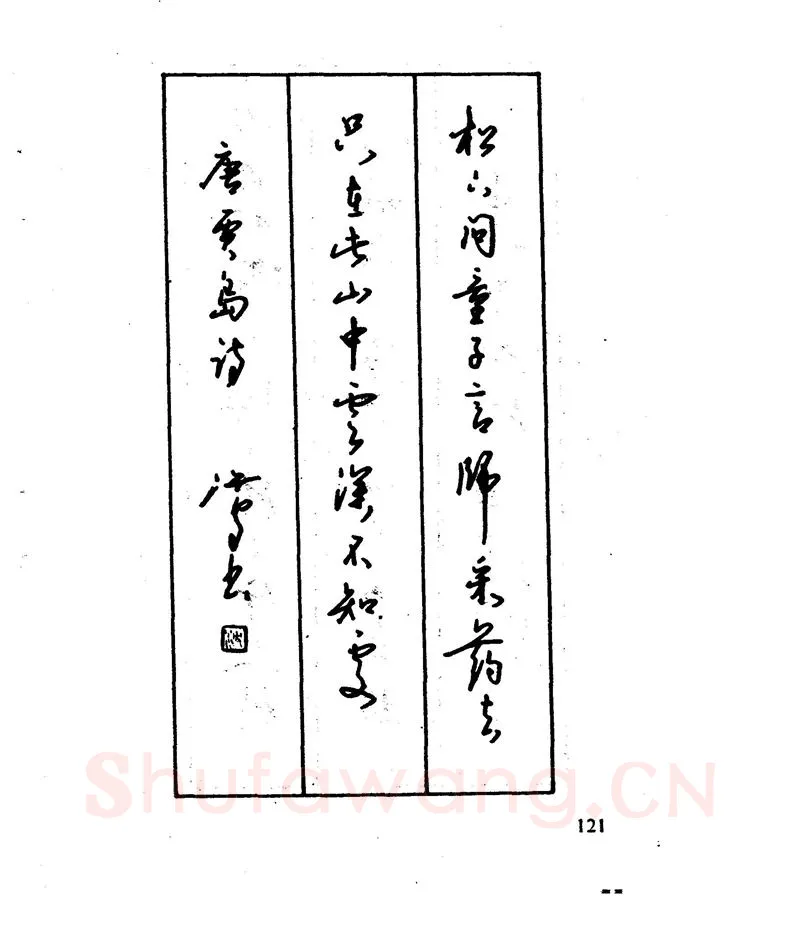 松下问童子言师采药去
只在此山中云深不知处
唐贾岛诗 书
Shufawang.CN
121